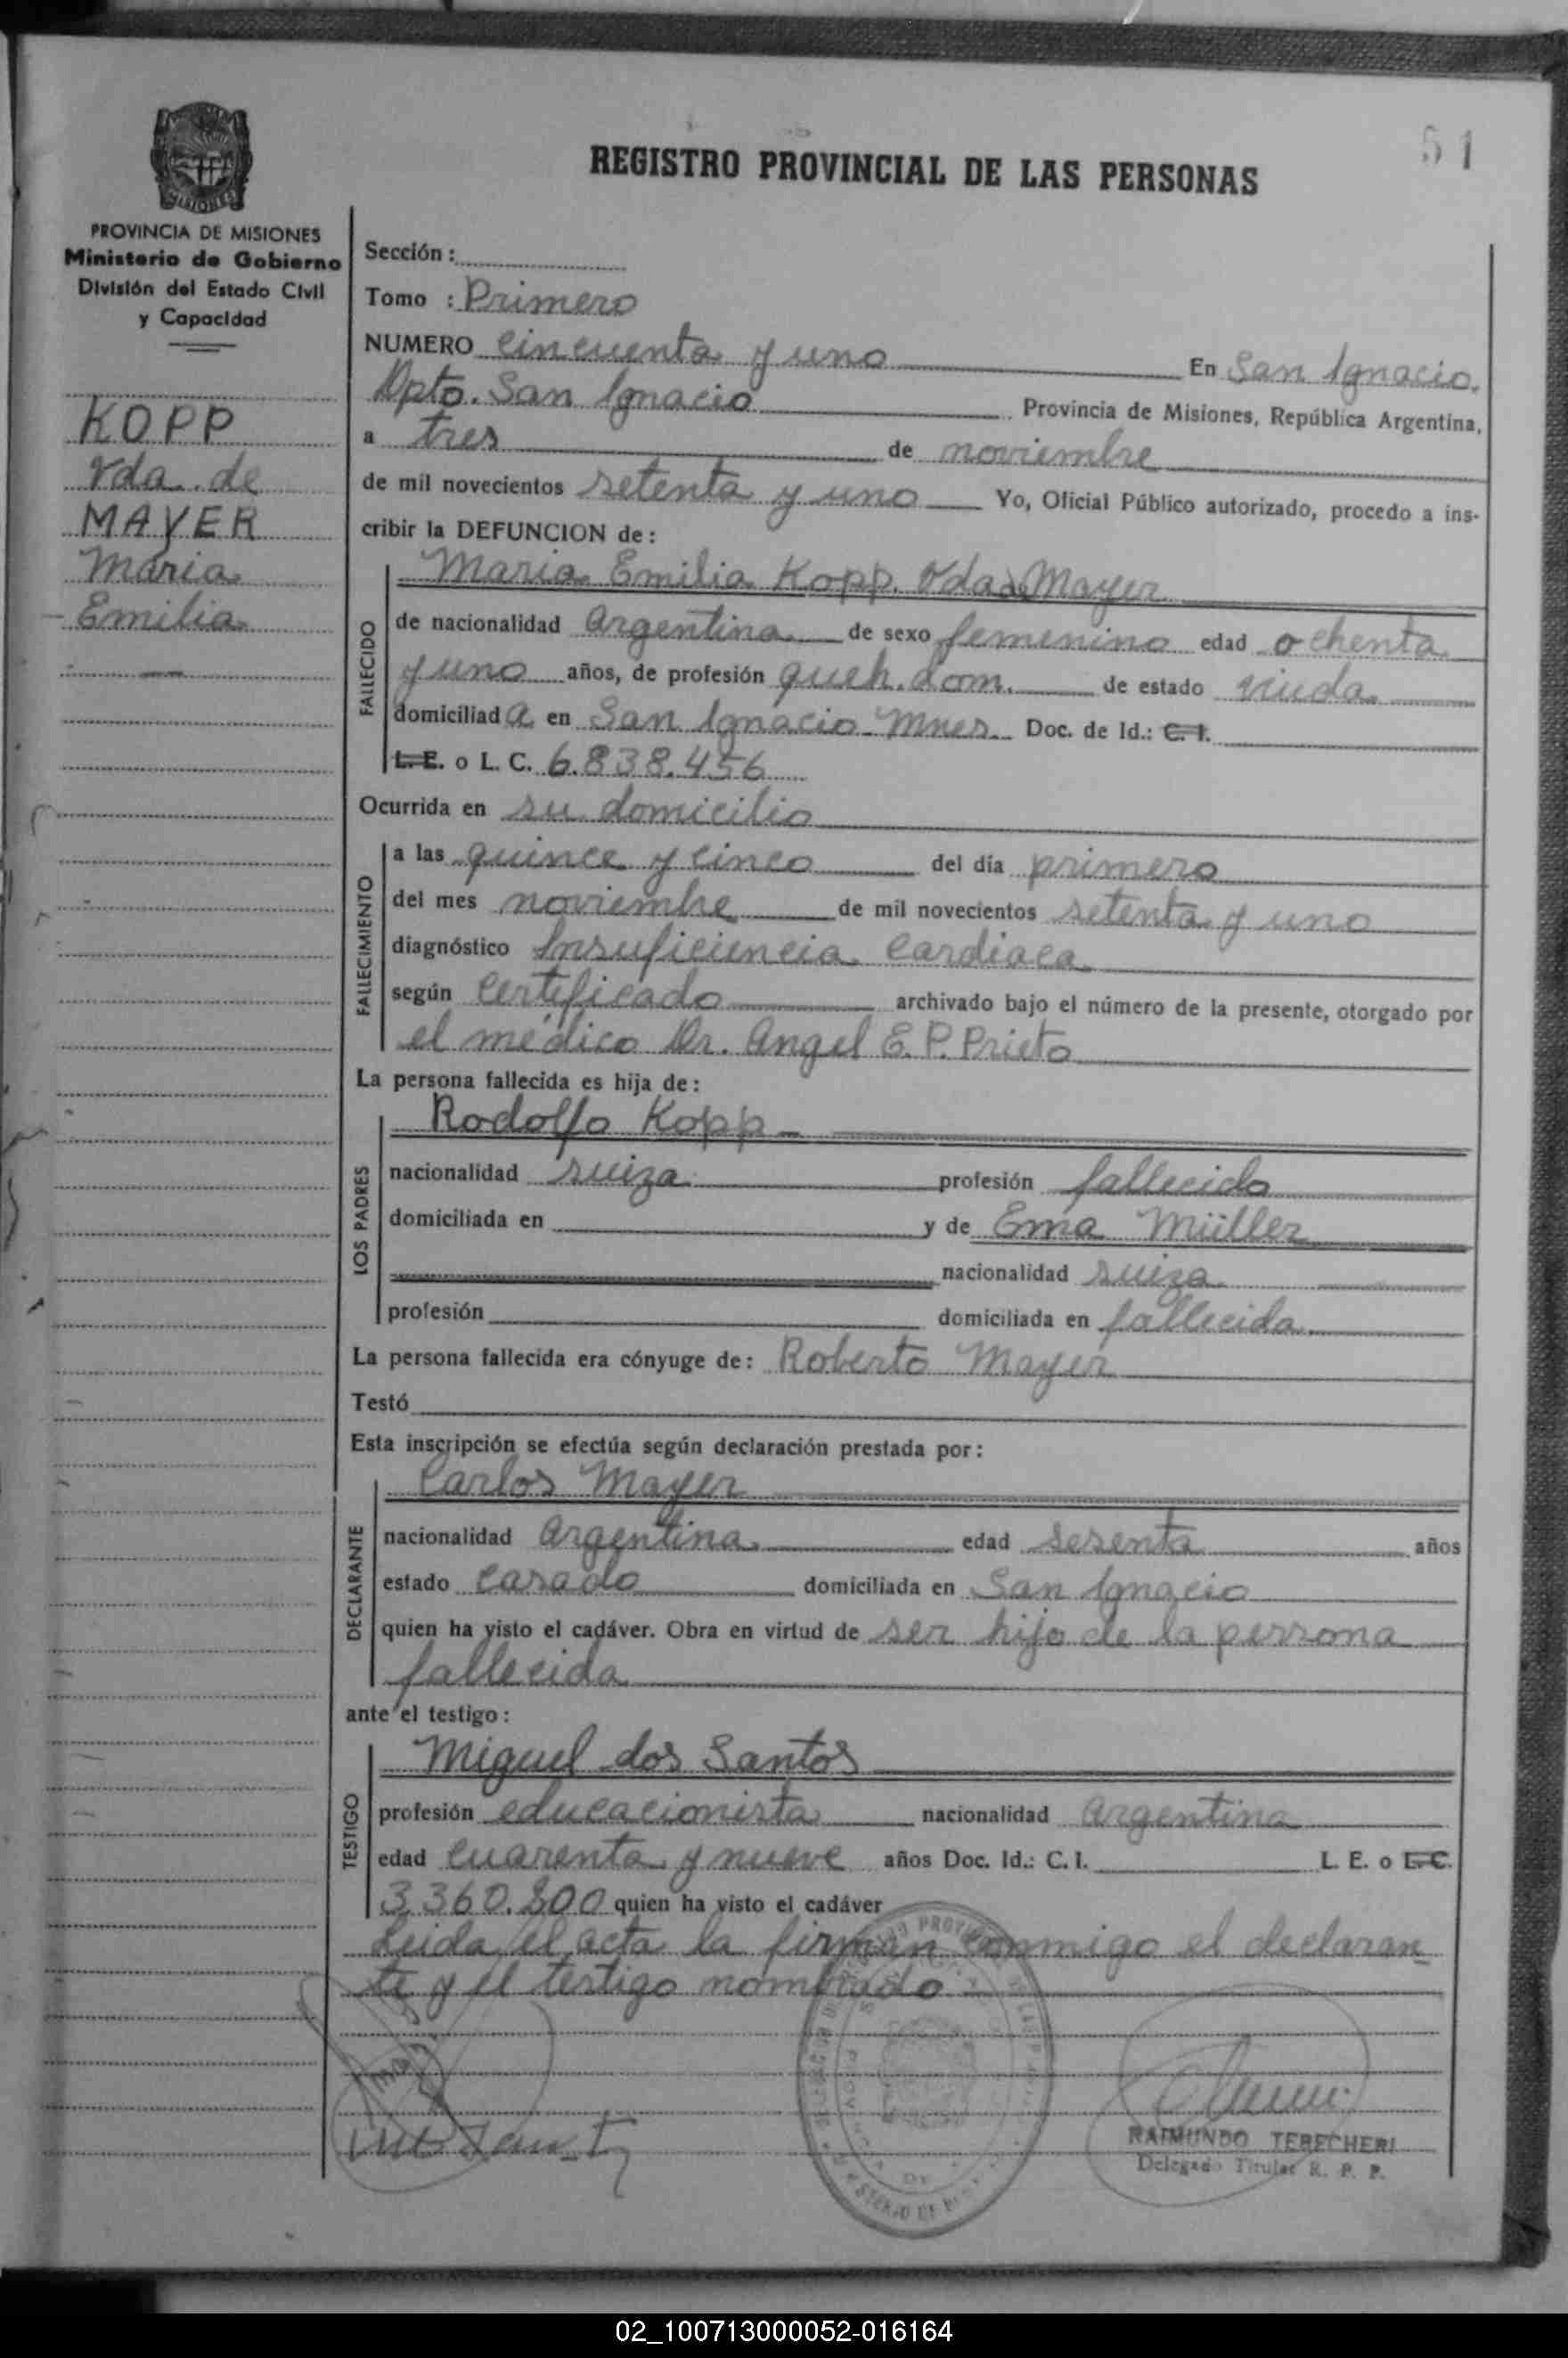 51
REGISTRO PROVINCIAL DE LAS PERSONAS
MISIONES
PROVINCIA DE MISIONES
Ministerio de Gobierno
División del Estado Civil
y Capacidad
KOPP
Vda. de
MAYER
Maria
Emilia
Sección :
Tomo : Primero
NUMERO cincuenta y uno En San Ignacio.
Dpto. San Ignacio Provincia de Misiones, República Argentina,
a tres de noviembre
de mil novecientos setenta y uno Yo, Oficial Público autorizado, procedo a ins-
cribir la DEFUNCION de :
FALLECIDO
Maria Emilia Kopp. Vda de Mayer
de nacionalidad argentina de sexo femenino edad ochenta
y uno años, de profesión queh. dom. de estado viuda
domiciliada en San Ignacio-Mnes. Doc. de Id.: C. I.
L.E. o L. C. 6.838.456
Ocurrida en su domicilio
FALLECIMIENTO
a las quince y cinco del día primero
del mes noviembre de mil novecientos setenta y uno
diagnóstico Insuficiencia cardiaca
según certificado archivado bajo el número de la presente, otorgado por
el médico Dr. Angel E. P. Prieto
La persona fallecida es hija de :
LOS PADRES
Rodolfo Kopp-
nacionalidad suiza profesión fallecido
domiciliada en y de Ema Müller
nacionalidad suiza
profesión domiciliada en fallecida
La persona fallecida era cónyuge de : Roberto Mayer
Testó
Esta inscripción se efectúa según declaración prestada por :
DECLARANTE
Carlos Mayer
nacionalidad argentina edad sesenta años
estado casado domiciliada en San Ignacio
quien ha visto el cadáver. Obra en virtud de ser hijo de la persona
fallecida
ante el testigo :
TESTIGO
Miguel dos Santos
profesión educacionista nacionalidad argentina
edad cuarenta y nueve años Doc. Id.: C. I. L. E. o L.C.
3.360.800 quien ha visto el cadáver
Leida el acta la firman conmigo el declaran-
te y el testigo nombrado-
RAIMUNDO TERECHERI
Delegado Titular R. P. P.
02_100713000052-016164